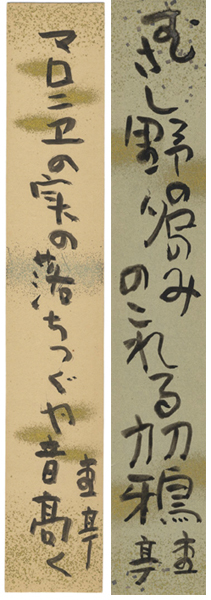 むさし野の名のみ
のこれる初鴉
亭
マロニエの実の落ちつぐや音高く
亭